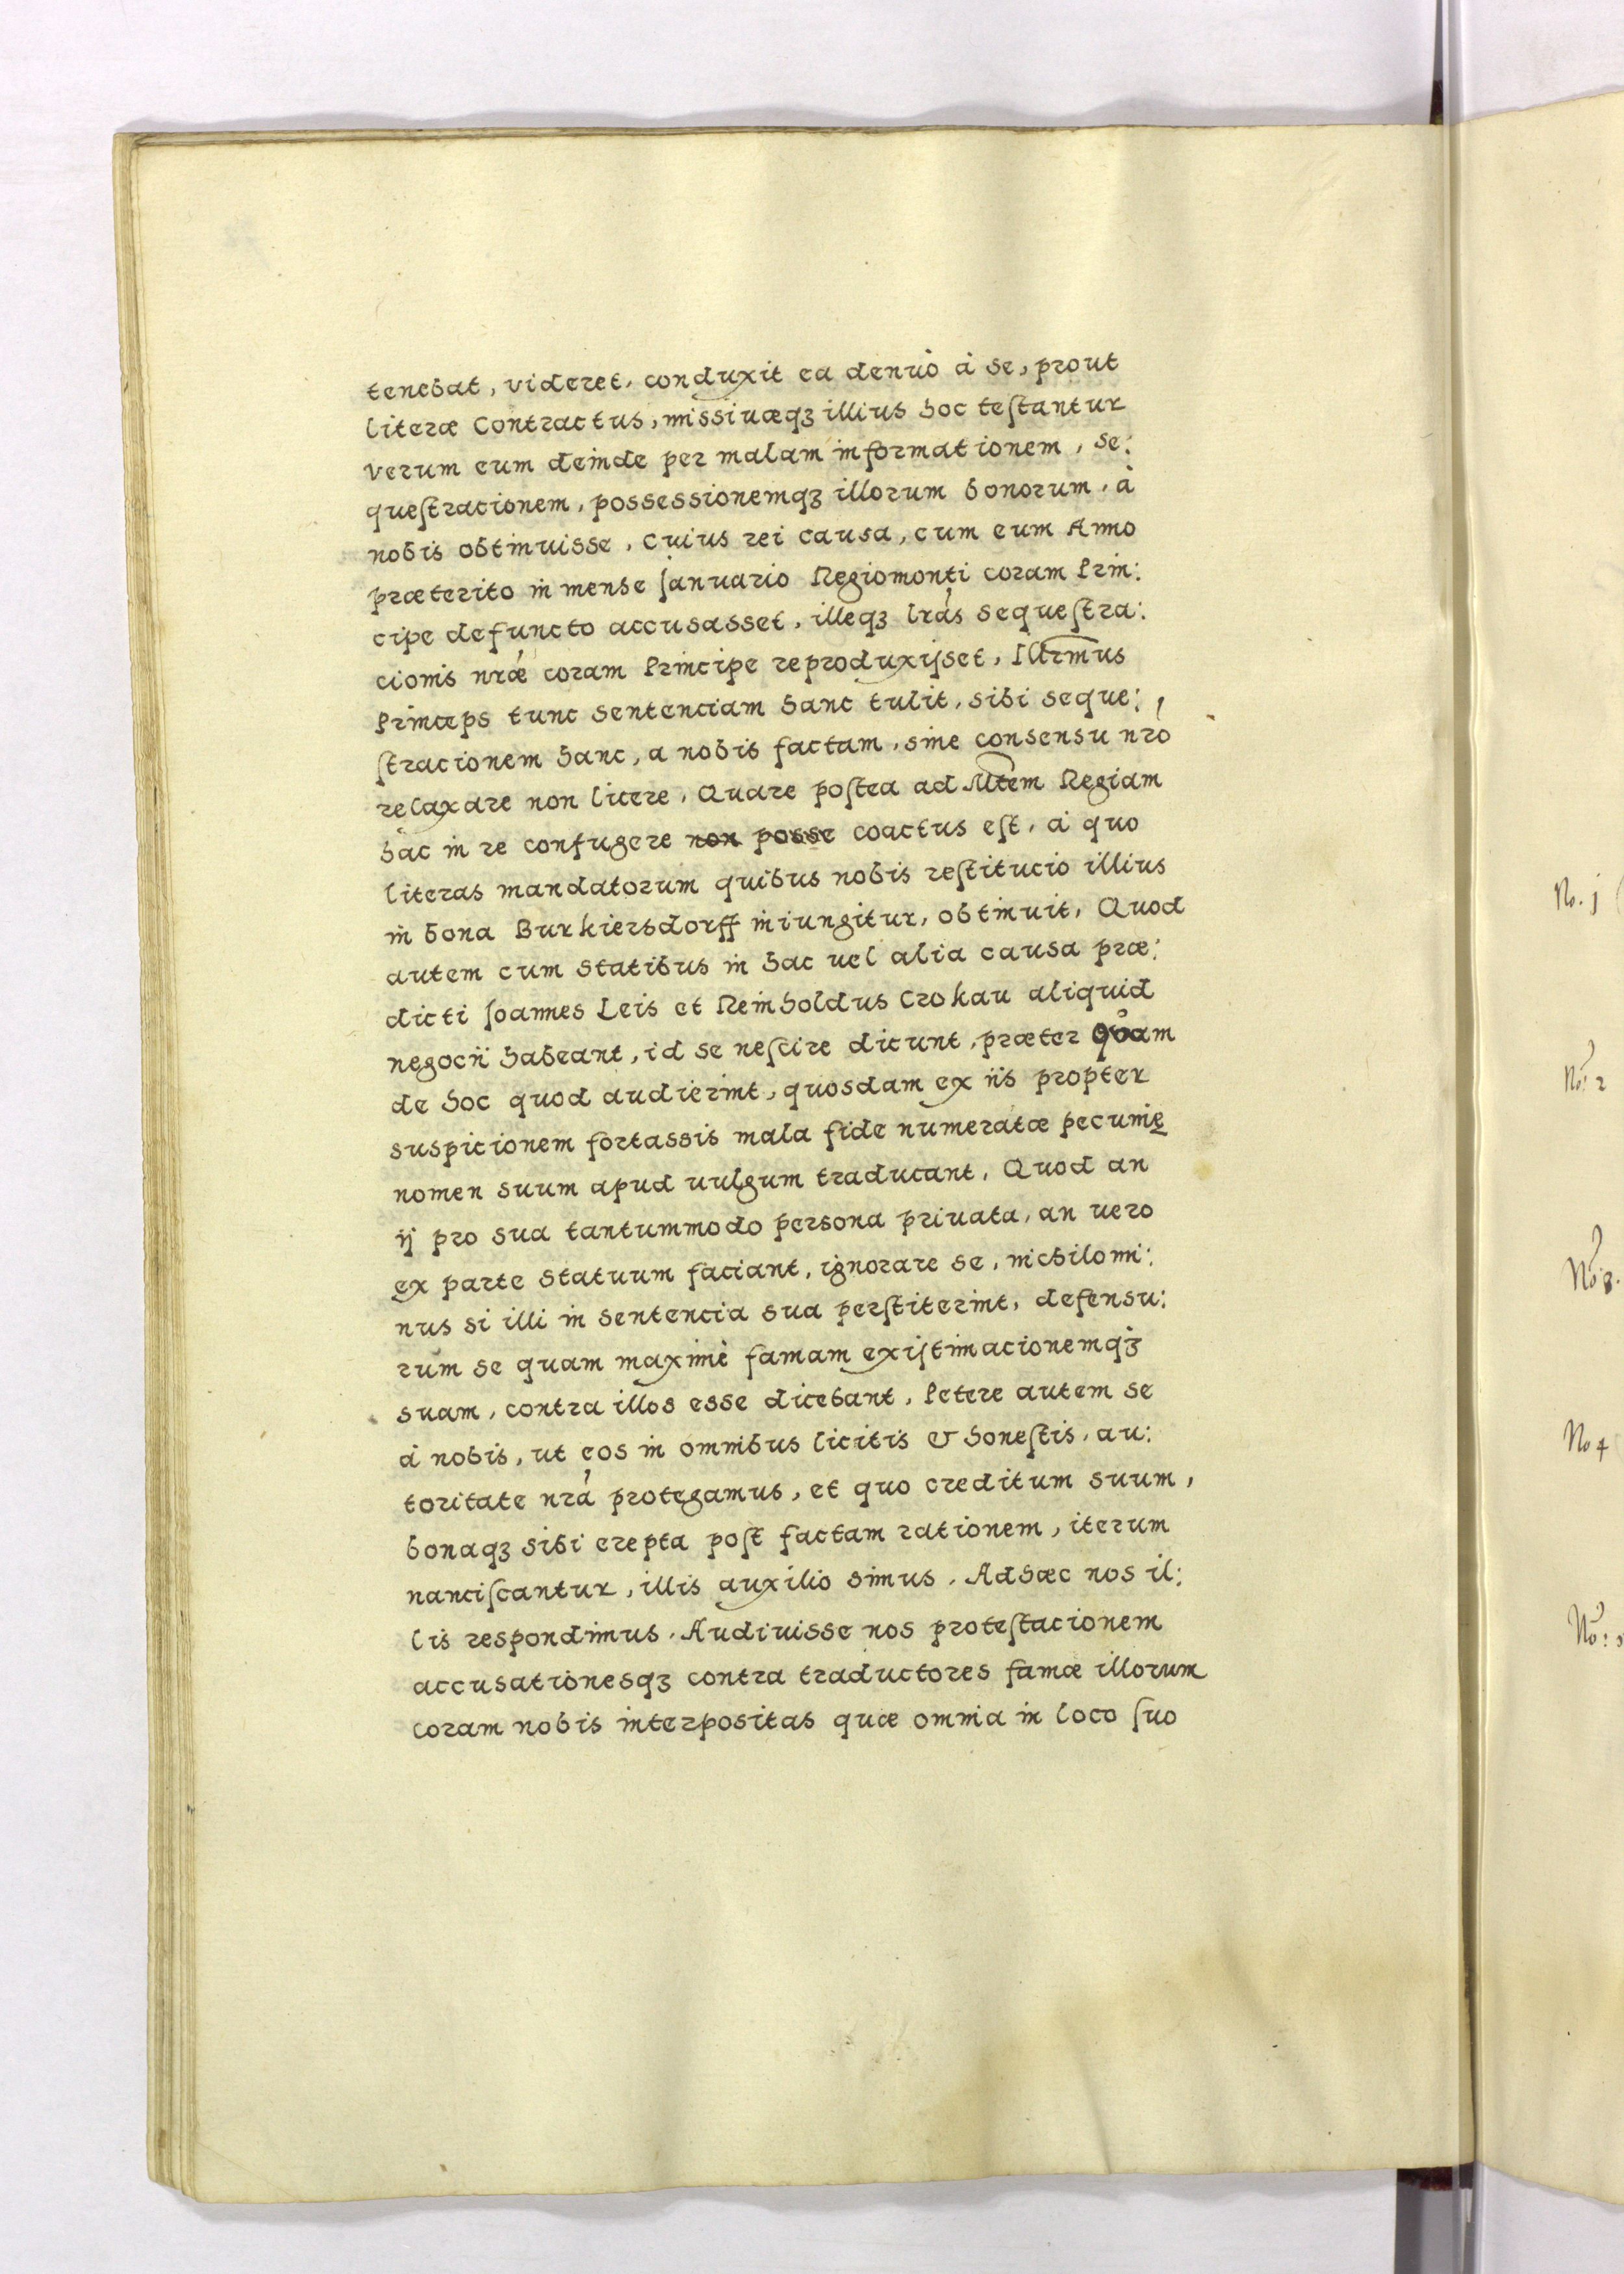 tenebat, videret, conduxit ea denuò à se, prout
literæ Contractus, missiuæq3 illius hoc testantur
verum eum deinde per malam informationem, se:
questracionem, possessionemq3 illorum bonorum, à
nobis obtinuisse, Cuius rei causa, cum eum Anno
præterito in mense Januario Regiomonti coram Prin:
cipe defuncto accusasset, illeq3 lrás sequestra:
cionis nrǽ coram Principe reproduxisset, Illrmus
Princeps tunc sentenciam hanc tulit, sibi seque:
stracionem hanc, a nobis factam, sine consensu nró
relaxare non licere, Quare postea ad Mtem Regiam
hac in re confugere non posse coactus est, à quo
literas mandatorum quibus nobis restitucio illius
in bona Burkiersdorff iniungitur, obtinuit, Quod
autem cum Statibus in hac uel alia causa præ:
dicti Joannes Leis et Reinholdus Crokau aliquid
negocii habeant, id se nescire dicunt, præter quam
de hoc quod audierint, quosdam ex iis propter
suspicionem fortassis mala fide numeratæ pecunię
nomen suum apud uulgum traducant, Quod an
ij pro sua tantummodo persona priuata, an uero
ex parte Statuum faciant, ignorare se, nichilomi:
nus si illi in sentencia sua perstiterint, defensu:
rum se quam maximè famam existimacionemq3
suam, contra illos esse dicebant, Petere autem se
à nobis, ut eos in omnibus licitis & honestis, au:
toritate nrá protegamus, et quo creditum suum,
bonaq3 sibi erepta post factam rationem, iterum
nanciscantur, illis auxilio simus. Ad hæc nos il:
lis respondimus. Audiuisse nos protestacionem
accusationesq3 contra traductores famæ illorum
coram nobis interpositas quæ omnia in loco suo
No. j
No: 2
No: 3.
No 4
No: 5